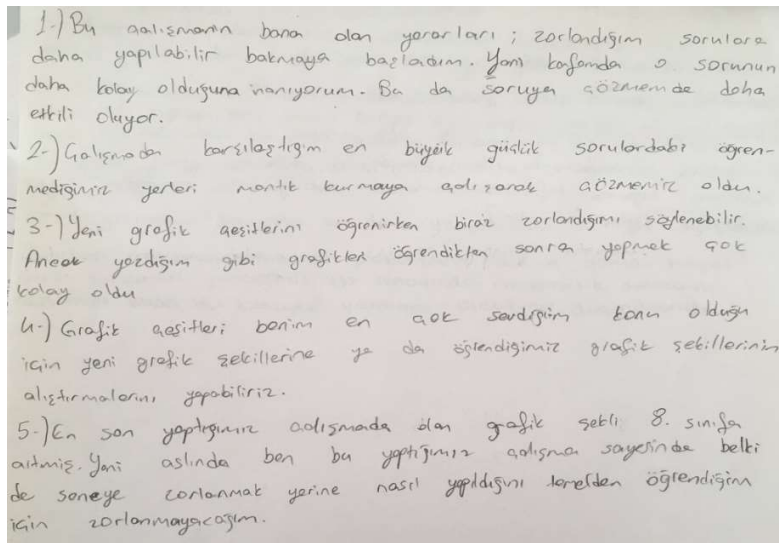 1-) Bu çalışmanın bana olan yararları ; zorlandığım sorulara
daha yapılabilir bakmaya başladım. Yani kafamda o sorunun
daha kolay olduğuna inanıyorum. Bu da soruya çözmemde daha
etkili oluyor.
2-) Çalışmada karşılaştığım en büyük güçlük sorulardaki öğren-
mediğimiz yerleri mantık kurmaya çalışarak çözmemiz oldu.
3-) Yeni grafik çeşitlerini öğrenirken biraz zorlandığımı söylenebilir.
Ancak yazdığım gibi grafikleri öğrendikten sonra yapmak çok
kolay oldu
4-) Grafik çeşitleri benim en çok sevdiğim konu olduğu
için yeni grafik şekillerine ya da öğrendiğimiz grafik şekillerinin
alıştırmalarını yapabiliriz.
5-) En son yaptığımız çalışmada olan grafik şekli 8. sınıfa
aitmiş. Yani aslında ben bu yaptığımız çalışma sayesinde belki
de seneye zorlanmak yerine nasıl yapıldığını temelden öğrendiğim
için zorlanmayacağım.